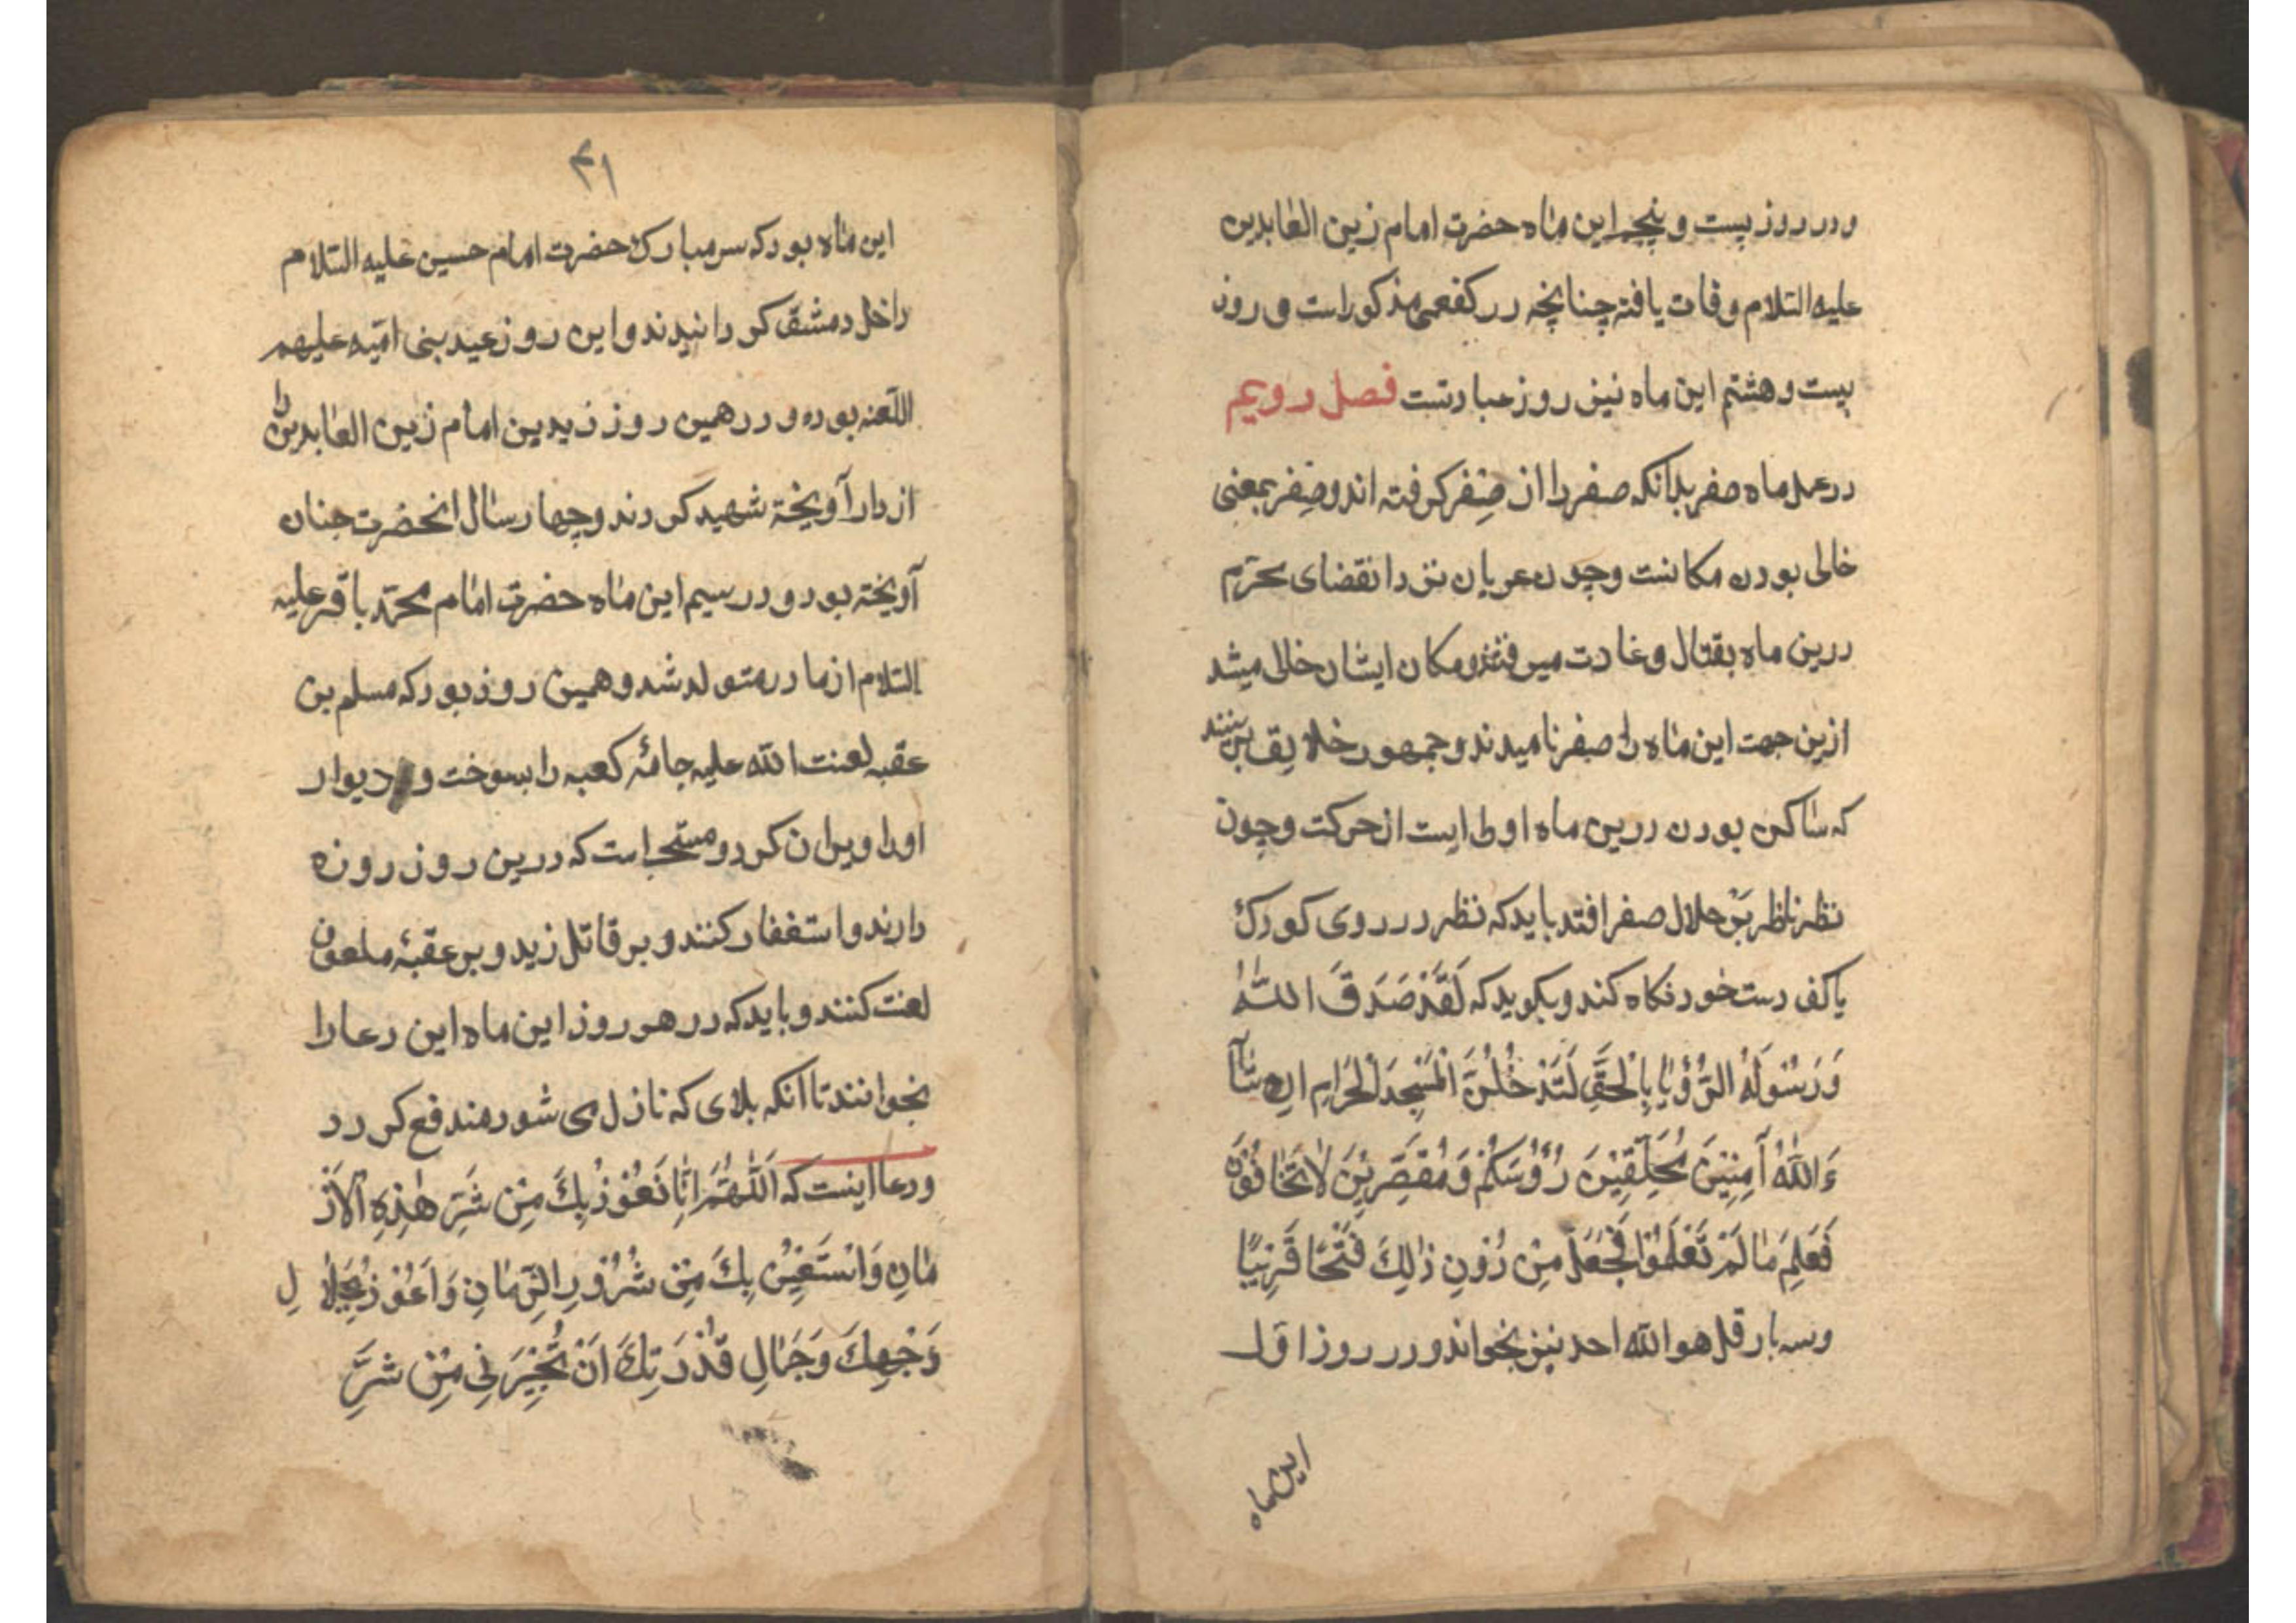 ودر روز بیست و پنجم این ماه حضرت امام زین العابدین
علیه السلام وفات یافته چنانچه در کفعمی مذکور است و روز
بیست و هشتم این ماه نیز روز عبادتست فصل دویم
در عمل ماه صفر بدانکه صفر را از صِفر گرفته اند و صِفر بمعنی
خالی بودن مکانست وچون عربان نزد انقضای محرّم
درین ماه بقتال وغارت میرفتند و مکان ایشان خالی میشد
ازین جهت این ماه را صفر نامیدند و جمهور خلایق برینند
که ساکن بودن درین ماه اولی است از حرکت وچون
نظر ناظر بَرْ هلال صفر افتد باید که نظر در روی کودک
یا کف دست خود نگاه کند و بگوید که لَقَدْ صَدَقَ اللّٰهُ
وَرَسُولَهُ الرُّؤْیَا بِالْحَقِّ لَتَدْخُلُنَّ الْمَسْجِدَ الْحَرَامِ اِن شَآ
ءَ اللّٰهُ آمِنِینَ مُحَلِّقِینَ رُؤُسَکُمْ وَمُقَصِّرِینَ لَا تَخَافُونَ
فَعَلِمَ مَا لَمْ تَعْلَمُوا فَجَعَلَ مِنْ دُونِ ذٰلِکَ فَتْحًا قَرِیبًا
وسه بار قل هو الله احد نیز بخواند و در روز اول
این ماه
۳۱
این ماه بود که سر مبارک حضرت امام حسین علیه السلام
داخل دمشق گردانیدند و این روز عید بنی امیّه علیهم
اللعنه بوده و در همین روز زید بن امام زین العابدین را
از دار آویخته شهید کردند وچهار سال انحضرت چنان
آویخته بود و در سیم این ماه حضرت امام محمّد باقر علیه
السلام از مادر متولد شد و همین روز بود که مسلم بن
عقبه لعنت الله علیه جامهٔ کعبه را بسوخت و دیوار
اورا ویران کرد و مستحب است که درین روز روزه
دارند و استغفار کنند و بر قاتل زید و بر عقبهٔ ملعون
لعنت کنند و باید که در هر روز این ماه این دعا را
بخوانند تا آنکه بلای که نازل می شود مندفع گردد
ودعا اینست که اَللّٰهُمَّ اِنَّا نَعُوْذُ بِكَ مِنْ شَرِّ هٰذِهِ الْاَزْ
مَانِ وَاَسْتَعِیْنُ بِكَ مِنْ شُرُوْرِ الزَّمَانِ وَاَعُوْذُ بِجَلَا لِ
وَجْهِكَ وَجَمَالِ قُدْرَتِكَ اَنْ تُجِیْرَنِی مِنْ شَرِّ